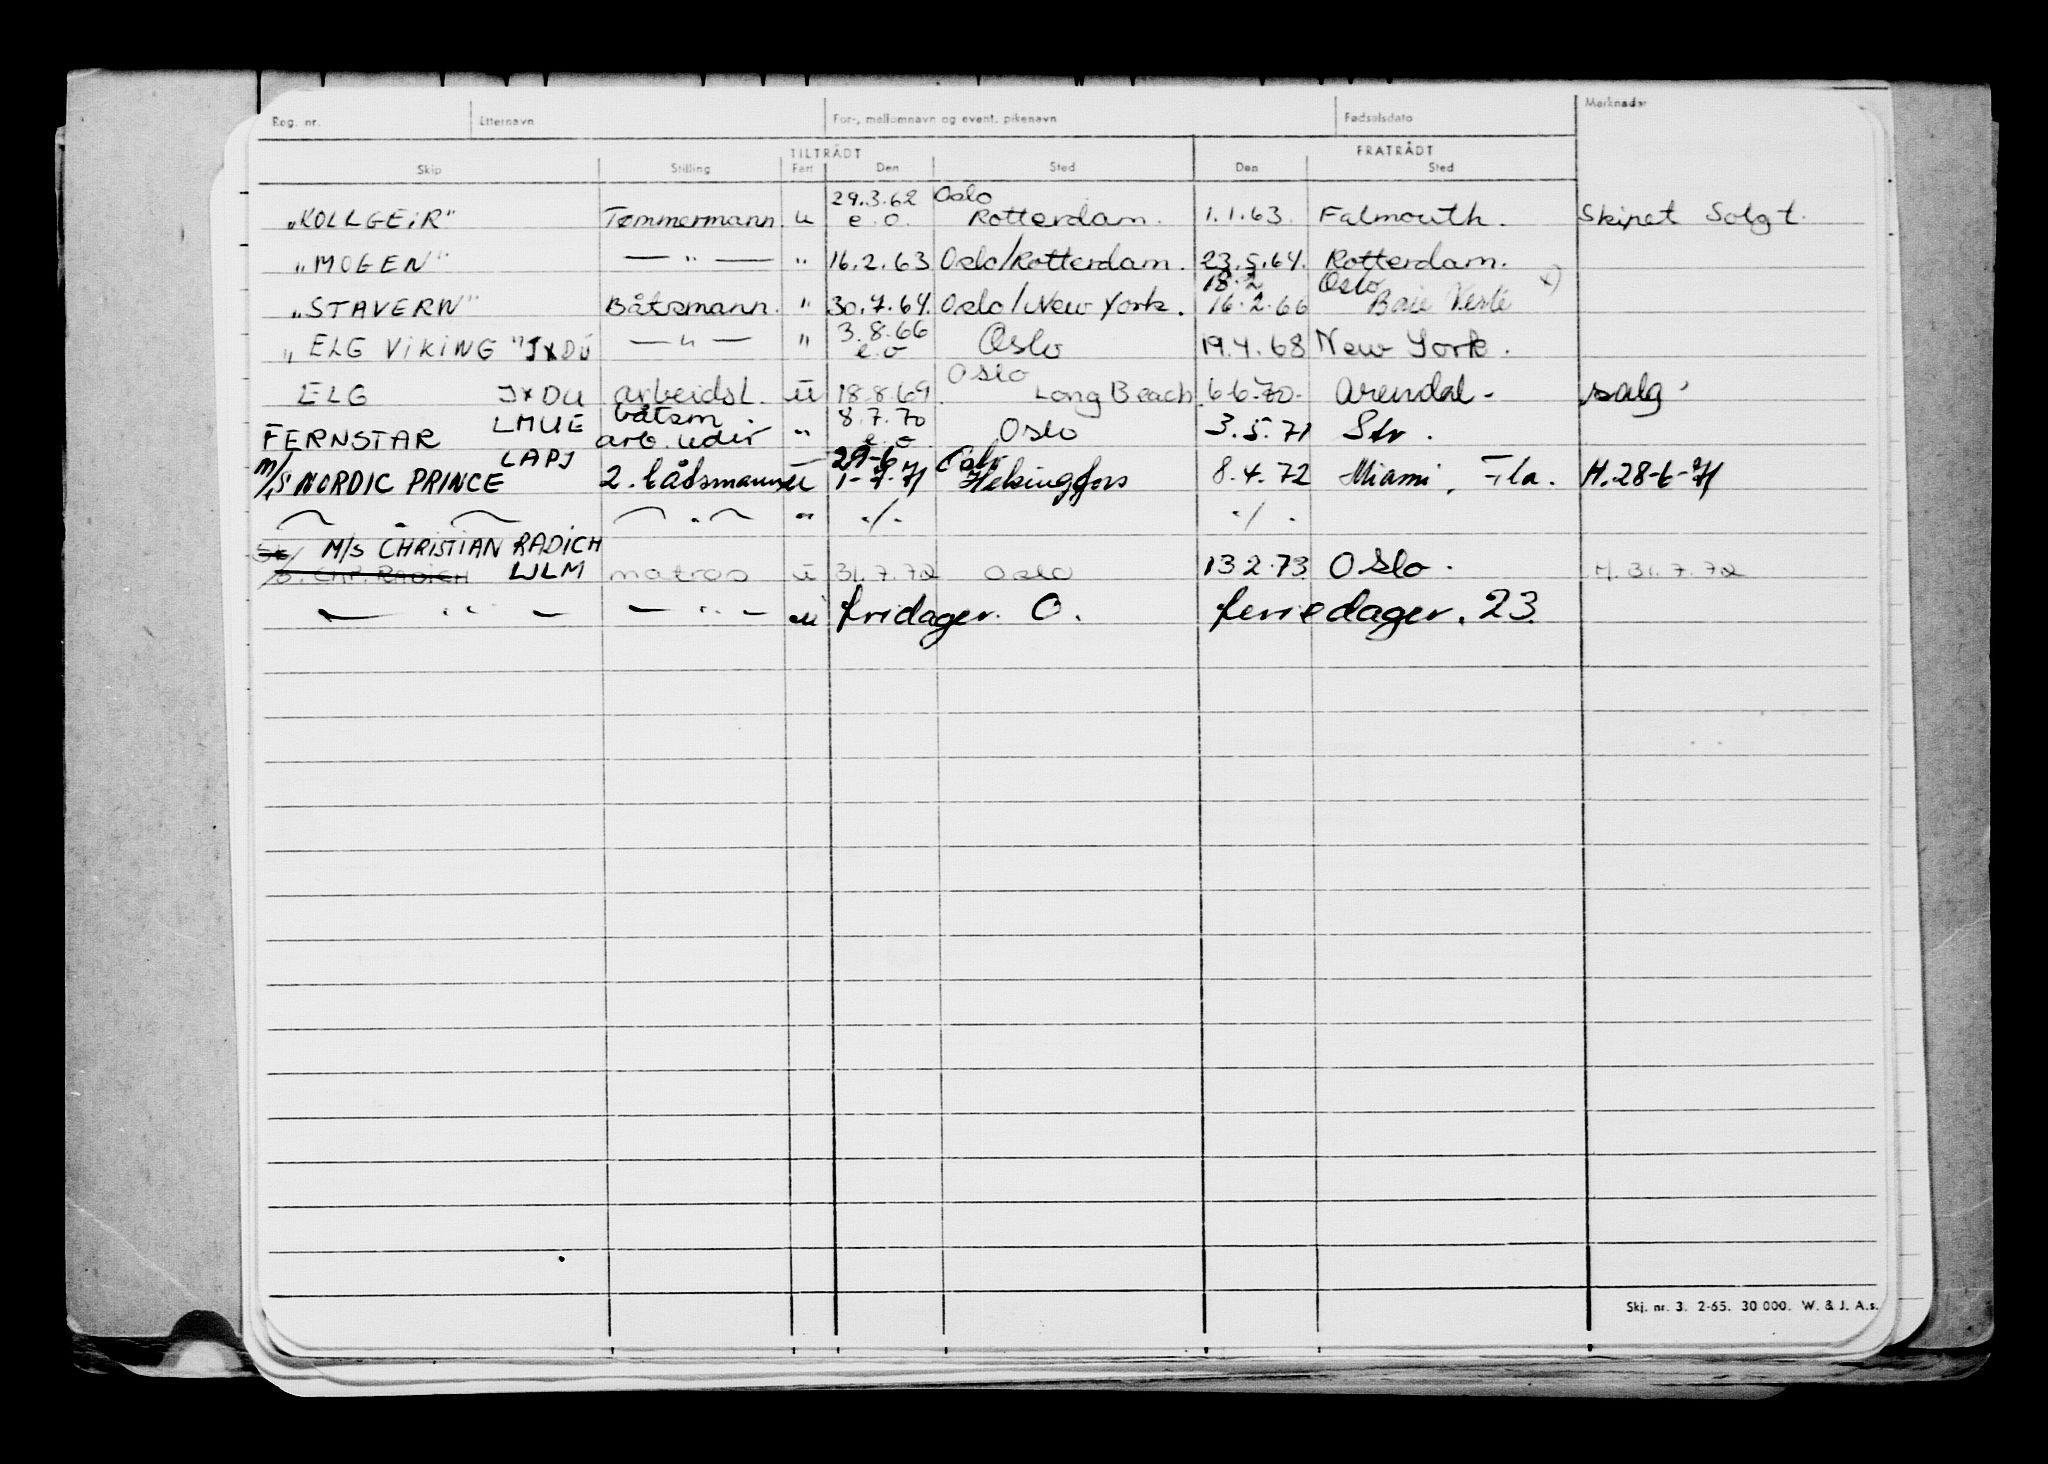 Reg. nr. Etternavn For-, mellomnavn og event. pikenavn Fødselsdato Merknader
TILTRÅDT FRATRÅDT
Skip Stilling Fart Den Sted Den Sted
29.3.62 Oslo
"KOLLGEIR" Tømmermann u e.o. Rotterdam. 1.1.63. Falmouth. Skipet Solgt.
"MOGEN" — " — " 16.2.63 Oslo/Rotterdam. 23.5.64. Rotterdam.
18.2 Oslo x)
"STAVERN" Båtsmann. " 30.7.64. Oslo/New York. 16.2.66 Baie Verte
3.8.66
"ELG VIKING" JXDU — " — " e.o Oslo 19.4.68 New York.
Oslo
ELG JXDU arbeidsl. u 18.8.69. Long Beach 6.6.70. Arendal. salg.
LMUE båtsm. 8.7.70
FERNSTAR arb.uder " e.o. Oslo 3.5.71 Str.
M/S LAPJ 29-6 Oslo
NORDIC PRINCE 2. båtsmann u 1-7-71 Helsingfors 8.4.72 Miami, Fla. H.28-6-71
— " — — " — " ./. ./.
M/S CHRISTIAN RADICH
S. CHR. RADICH LJLM matros u 31.7.72 Oslo 13.2.73 Oslo. H. 31.7.72
— " — — " — u fridager. 0. feriedager. 23.
Skj. nr. 3. 2-65. 30 000. W. & J. A.s.